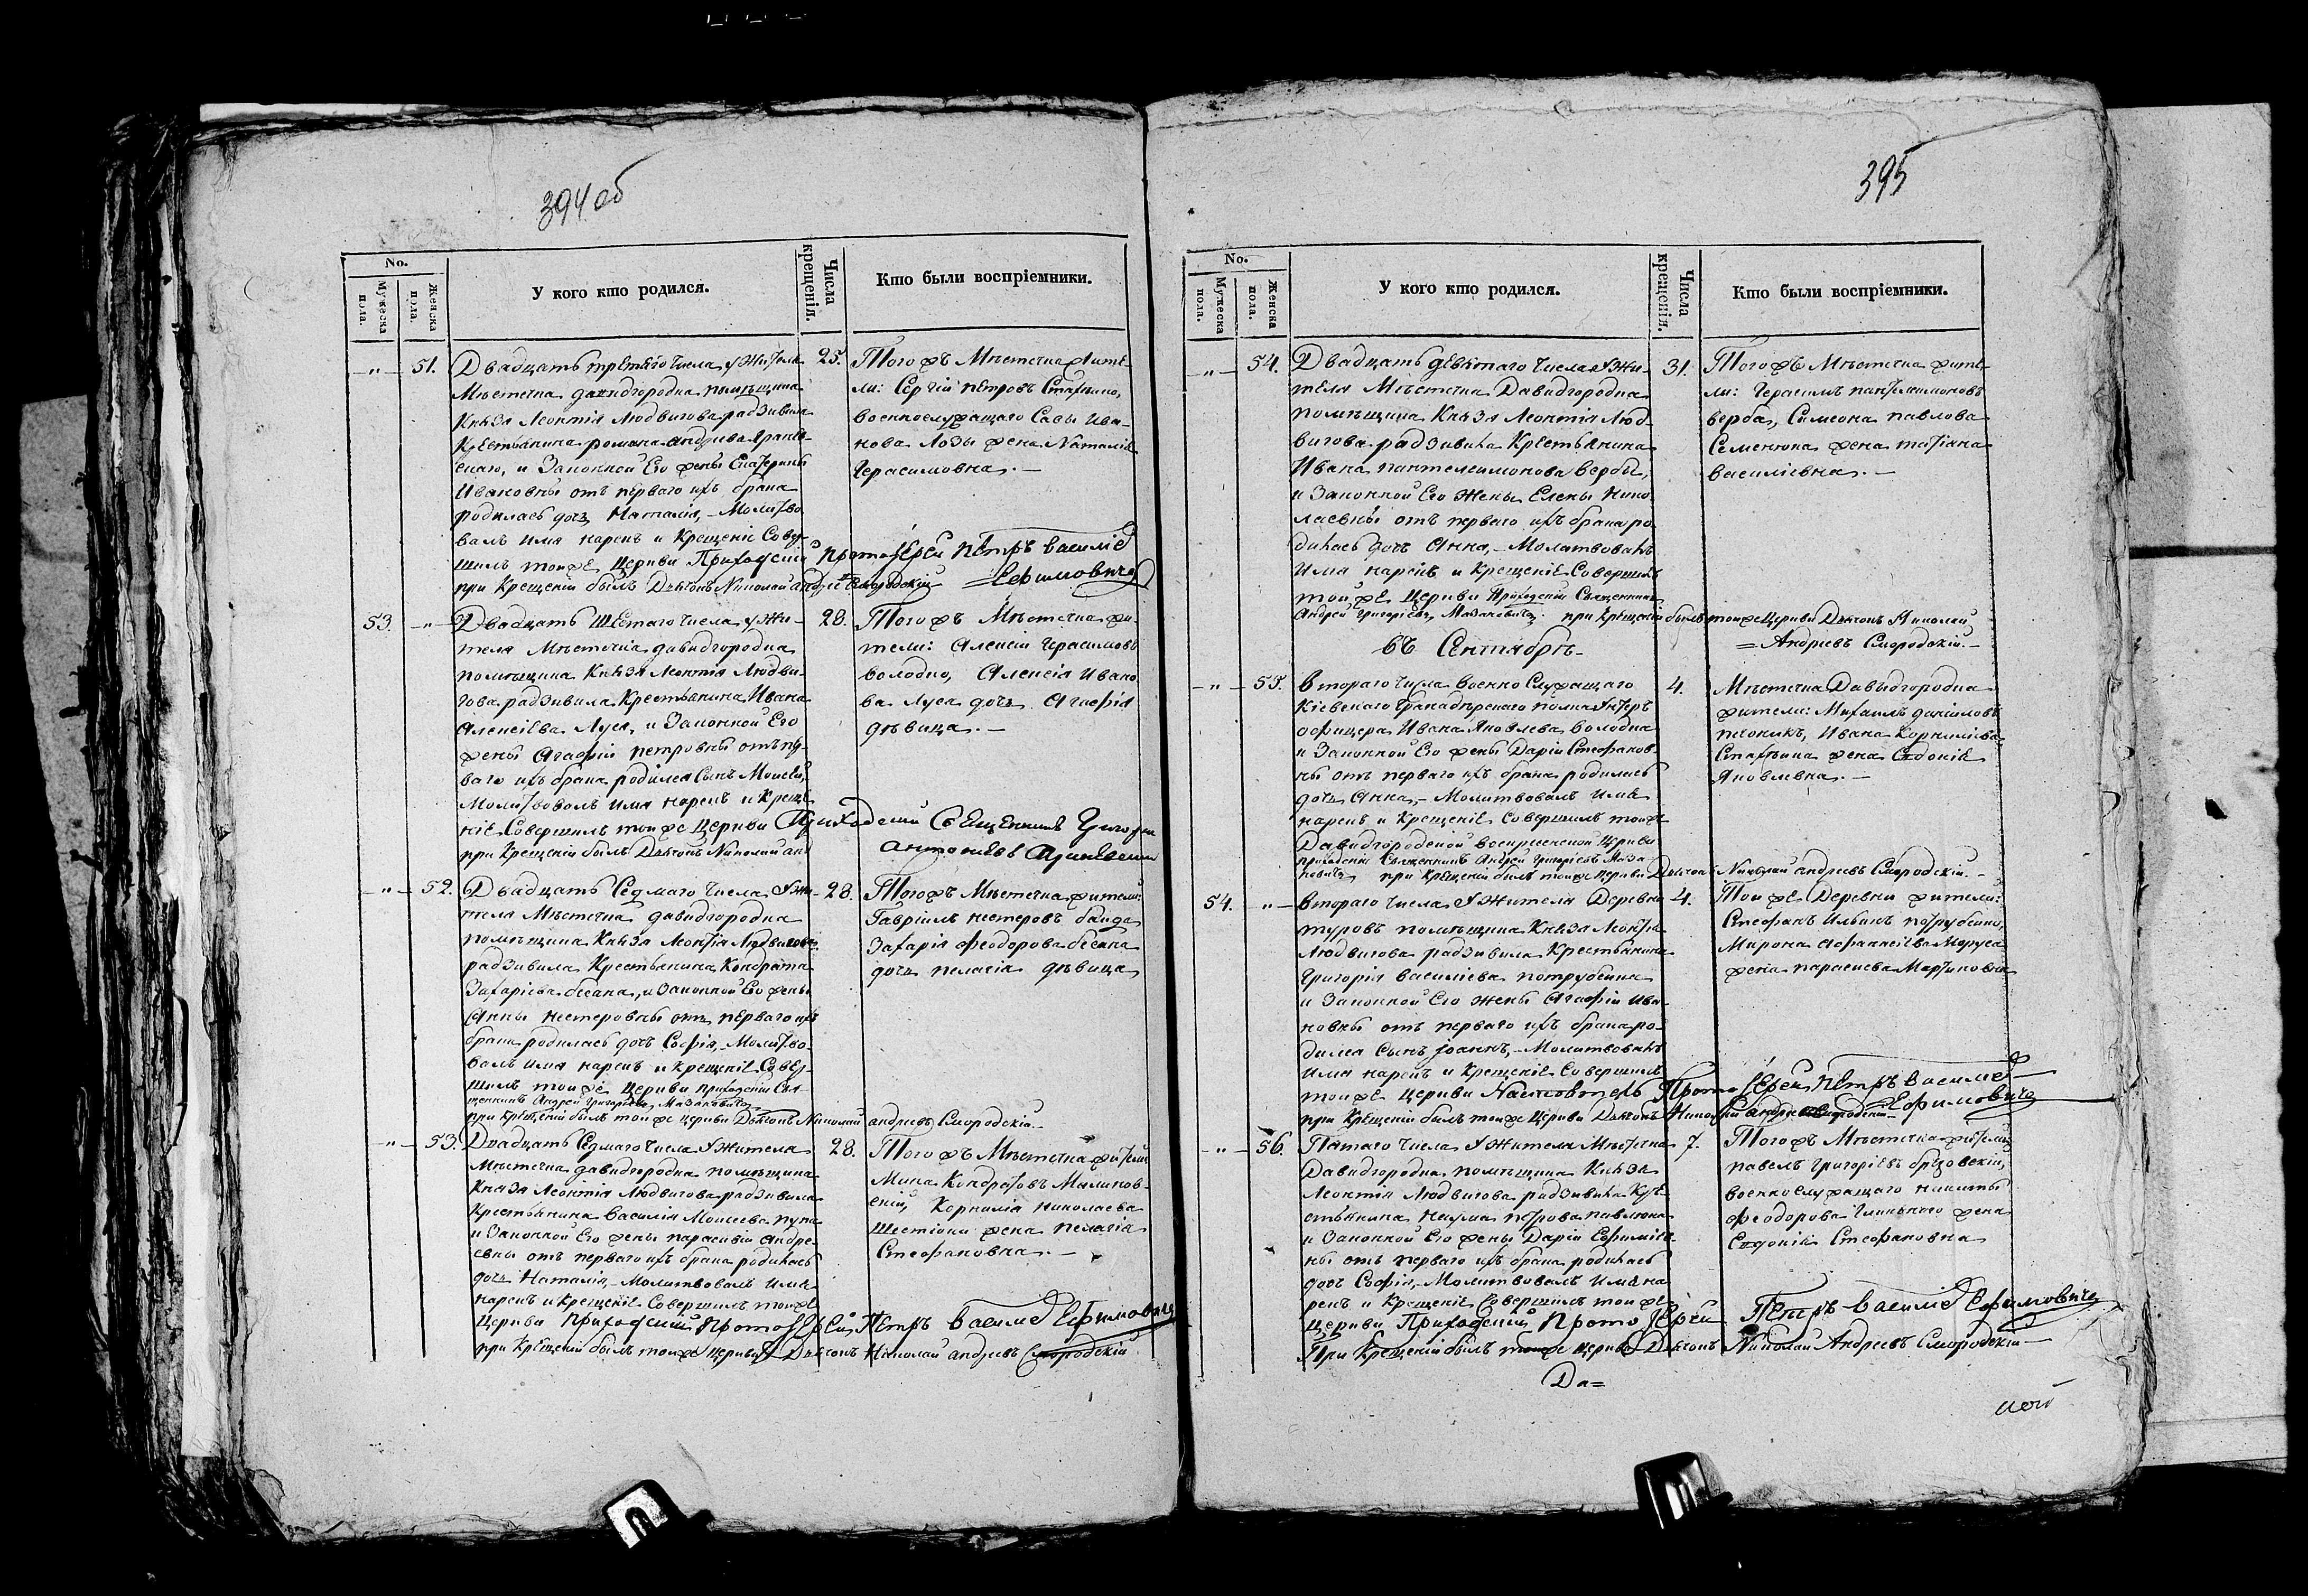 394 об
No.
Мужеска пола.
Женска пола.
У кого кто родился.
Числа крещенія.
Кто были воспріемники.
— " — 51.
Двадцать третяго числа, у жителя
Местечка давидгородка помѣщика
Князя Леонтія Людвигова радзивила
Крестьянина романа андрѣева
и Законной Его жены Екатерины
Ивановны отъ перваго ихъ брака
родилась дочь Наталія, – Молитво
валъ имя нарекъ и Крещеніе Совер-
шилъ тойже Церкви Приходскій протоіерей петръ василіевъ
Ефимовичъ
при Крещеніи былъ Діаконъ Николай андреевъ Смородскій
25.
Тогожъ Мѣстечка жите-
ли: Сергій петровъ
военнослужащаго Савы Ива-
нова Лозы жена Наталія
Герасимовна. —
53. — " —
Двадцать Шестаго числа у жи-
теля Мѣстечка давидгородка
помѣщика Князя Леонтія Людви-
гова радзивила Крестьянина Ивана
Алексіева Луся, и Законной Его
жены Агафіи петровны отъ пер-
ваго ихъ брака родился Сынъ Моисей,
Молитвовалъ имя нарекъ и Креще
ніе Совершилъ тойже Церкви Приходскій Священникъ Григорій
антоніевъ
при Крещеніи былъ Діаконъ Николай анд
28.
Тогожъ Мѣстечка жи-
тели: Алексій Герасимовъ
володко, Алексія Ивано
ва Луся дочь Агафія
дѣвица. —
— " — 52.
Двадцать Седмаго числа у жи-
теля Мѣстечка давидгородка
помѣщика Князя Леонтія Людвигова
радзивила Крестьянина Кондрата
Захаріева бесана, и Законной Его жены
Анны нестеровны отъ перваго ихъ
брака родилась дочь Софія, – Молитво-
валъ имя нарекъ и Крещеніе Совер-
шилъ тойже Церкви приходскій Свя-
щенникъ Андрей Григоріевъ Мазановичъ
при крещеніи былъ тойже церкви Діаконъ Николай андреевъ Смородскій. —
28.
Тогожъ Мѣстечка жители:
Гавріилъ нестеровъ
Захарія феодорова бесана
дочь пелагія дѣвица
— " — 53.
Двадцать Седмаго числа у жителя
Мѣстечка давидгородка помѣщика
Князя Леонтія Людвигова радзивила
Крестьянина василія Моисеева
и Законной Его жены параскевіи андре-
евны отъ перваго ихъ брака родилась
дочь Наталія, – Молитвовалъ имя
нарекъ и Крещеніе Совершилъ тойже
Церкви приходскій протоіерей Петръ василіевъ Ефимовичъ
при Крещеніи былъ тойже церкви Діаконъ Николай андреевъ Смородскій
28.
Тогожъ Мѣстечка жители
Мина Кондратовъ Малинов-
скій, Корнилія николаева
жена пелагія
Стефановна. —
395
No.
Мужеска пола.
Женска пола.
У кого кто родился.
Числа крещенія.
Кто были воспріемники.
— " — 54.
Двадцать девятаго числа у жи-
теля Мѣстечка Давидгородка
помѣщика Князя Леонтія Люд-
вигова радзивила Крестьянина
Ивана пантелеимонова вербы,
и Законной Его жены Елены Нико
лаевны отъ перваго ихъ брака ро
дилась дочь Анна, – Молитвовалъ
имя нарекъ и Крещеніе Совершилъ
тойже Церкви Приходскій Священникъ
Андрей Григоріевъ Мазановичъ. при крещеніи былъ тойже Церкви Діаконъ Николай
= Андріевъ Смородскій. —
31.
Тогожъ Мѣстечка жите-
ли: Герасимъ пантелеимоновъ
верба, Симеона павлова
Семенюка жена татіана
василіевна. —
въ Сентябрѣ. —
— " — 55.
втораго числа военно Служащаго
Кіевскаго Гранадерскаго полка унтеръ
офицера Ивана Яковлева володка
и Законной Его жены Даріи Стефанов-
ны отъ перваго ихъ брака родилась
дочь Анна, – Молитвовалъ имя
нарекъ и Крещеніе Совершилъ тойже
Давидгородской воскресенской Церкви
приходскій Священникъ Андрей Григоріевъ Маза
новичъ при крещеніи былъ тойже церкви Діаконъ Николай андреевъ Смородскій. —
4.
Мѣстечка Давыдгородка
жители: Михаилъ даніиловъ
Ивана Корниліева
жена
Яковлевна. —
54. — " —
втораго числа у жителя Деревни
туровъ помѣщика Князя Леонтія
Людвигова радзивила Крестьянина
Григорія василіева потрубейка
и Законной Его жены Агафіи Ива-
новны отъ перваго ихъ брака ро-
дился Сынъ Іоаннъ, – Молитвовалъ
имя нарекъ и Крещеніе Совершилъ
тойже Церкви Настоятель Протоіерей Петръ василіевъ
Ефимовичъ
при Крещеніи былъ тойже Церкви Діаконъ Николай андреевъ Смородскій
4.
Тойже Деревни жители:
Стефанъ Ильинъ потрубейко,
Мирона Афанасіева Моруса
жена параскева Мартиновна
— " — 56.
Пятаго числа у жителя Мѣстечка
Давидгородка помѣщика Князя
Леонтія Людвигова радзивила Кре-
стьянина наума петрова павлюка
и Законной Его жены Даріи Ефиміев
ны отъ перваго ихъ брака родилась
дочь Софія, – Молитвовалъ имя на
рекъ и Крещеніе Совершилъ тойже
Церкви Приходскій Протоіерей Петръ василіевъ Ефимовичъ
При Крещеніи былъ тойже Церкви Діаконъ Николай Андреевъ Смородскій —
7.
Тогожъ Мѣстечка жители
павелъ григоріевъ
военнослужащаго никиты
феодорова жена
Стефановна
Да=